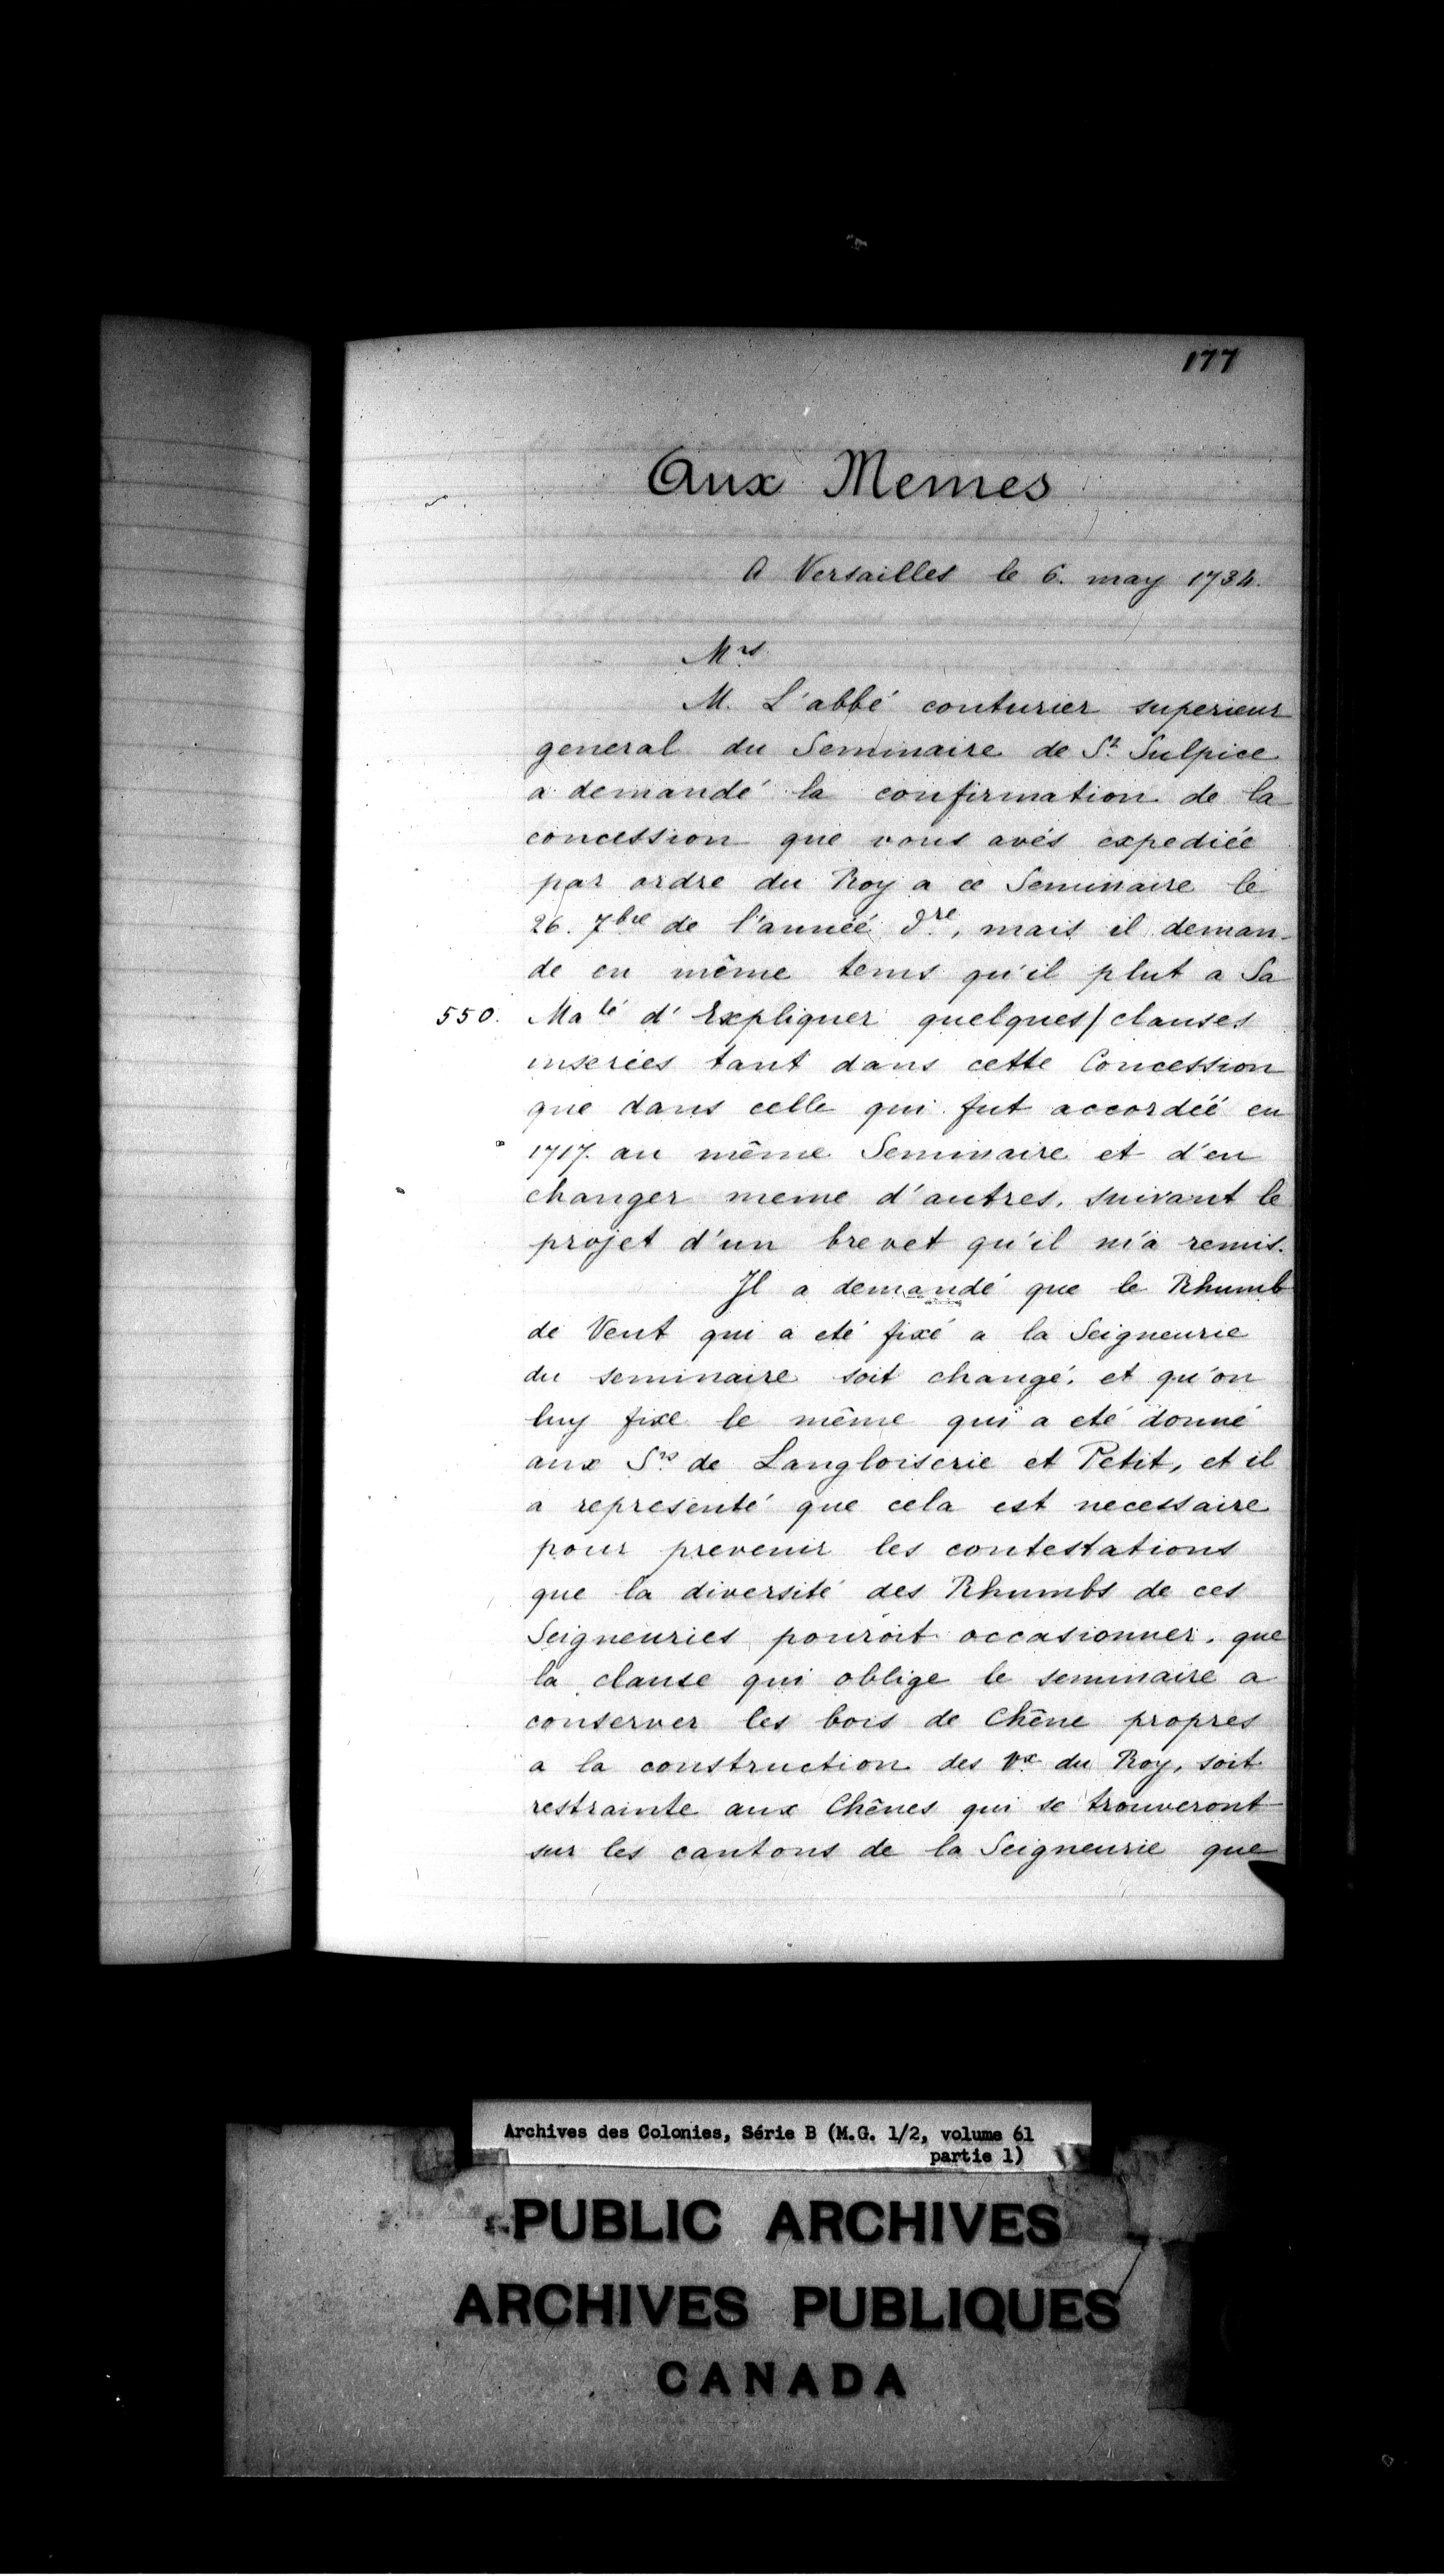 177
Aux Memes
A Versailles le 6. may 1734.
Mrs
M. L'abbé couturier superieur
general du Seminaire de St Sulpice
a demandé la confirmation de la
concession que vous avés expediée
par ordre du Roy a ce Seminaire le
26. 7bre de l'année dre, mais il deman-
de en même tems qu'il plut a Sa
550. Maté d'Expliquer quelques/clauses
inserées tant dans cette Concession
que dans celle qui fut accordée en
1717. au même Seminaire et d'en
changer meme d'autres, suivant le
projet d'un brevet qu'il m'a remis.
Il a demandé que le Rhumb
de Vent qui a eté fixé a la Seigneurie
du seminaire soit changé, et qu'on
luy fixe le même qui a eté donné
aux Srs de Langloiserie et Petit, et il
a representé que cela est necessaire
pour prevenir les contestations
que la diversité des Rhumbs de ces
Seigneuries pouroit occasionner, que
la clause qui oblige le seminaire a
conserver les bois de Chêne propres
a la construction des Vx du Roy, soit
restrainte aux Chênes qui se trouveront
sur les cantons de la Seigneurie que
Archives des Colonies, Série B (M.G. 1/2, volume 61
partie 1)
PUBLIC ARCHIVES
ARCHIVES PUBLIQUES
CANADA